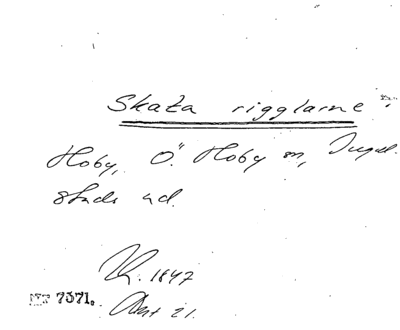 Skata rigglarne
Hoby, Ö. Hoby sn, Ingel-
stads hd.
1847
7371.
21.